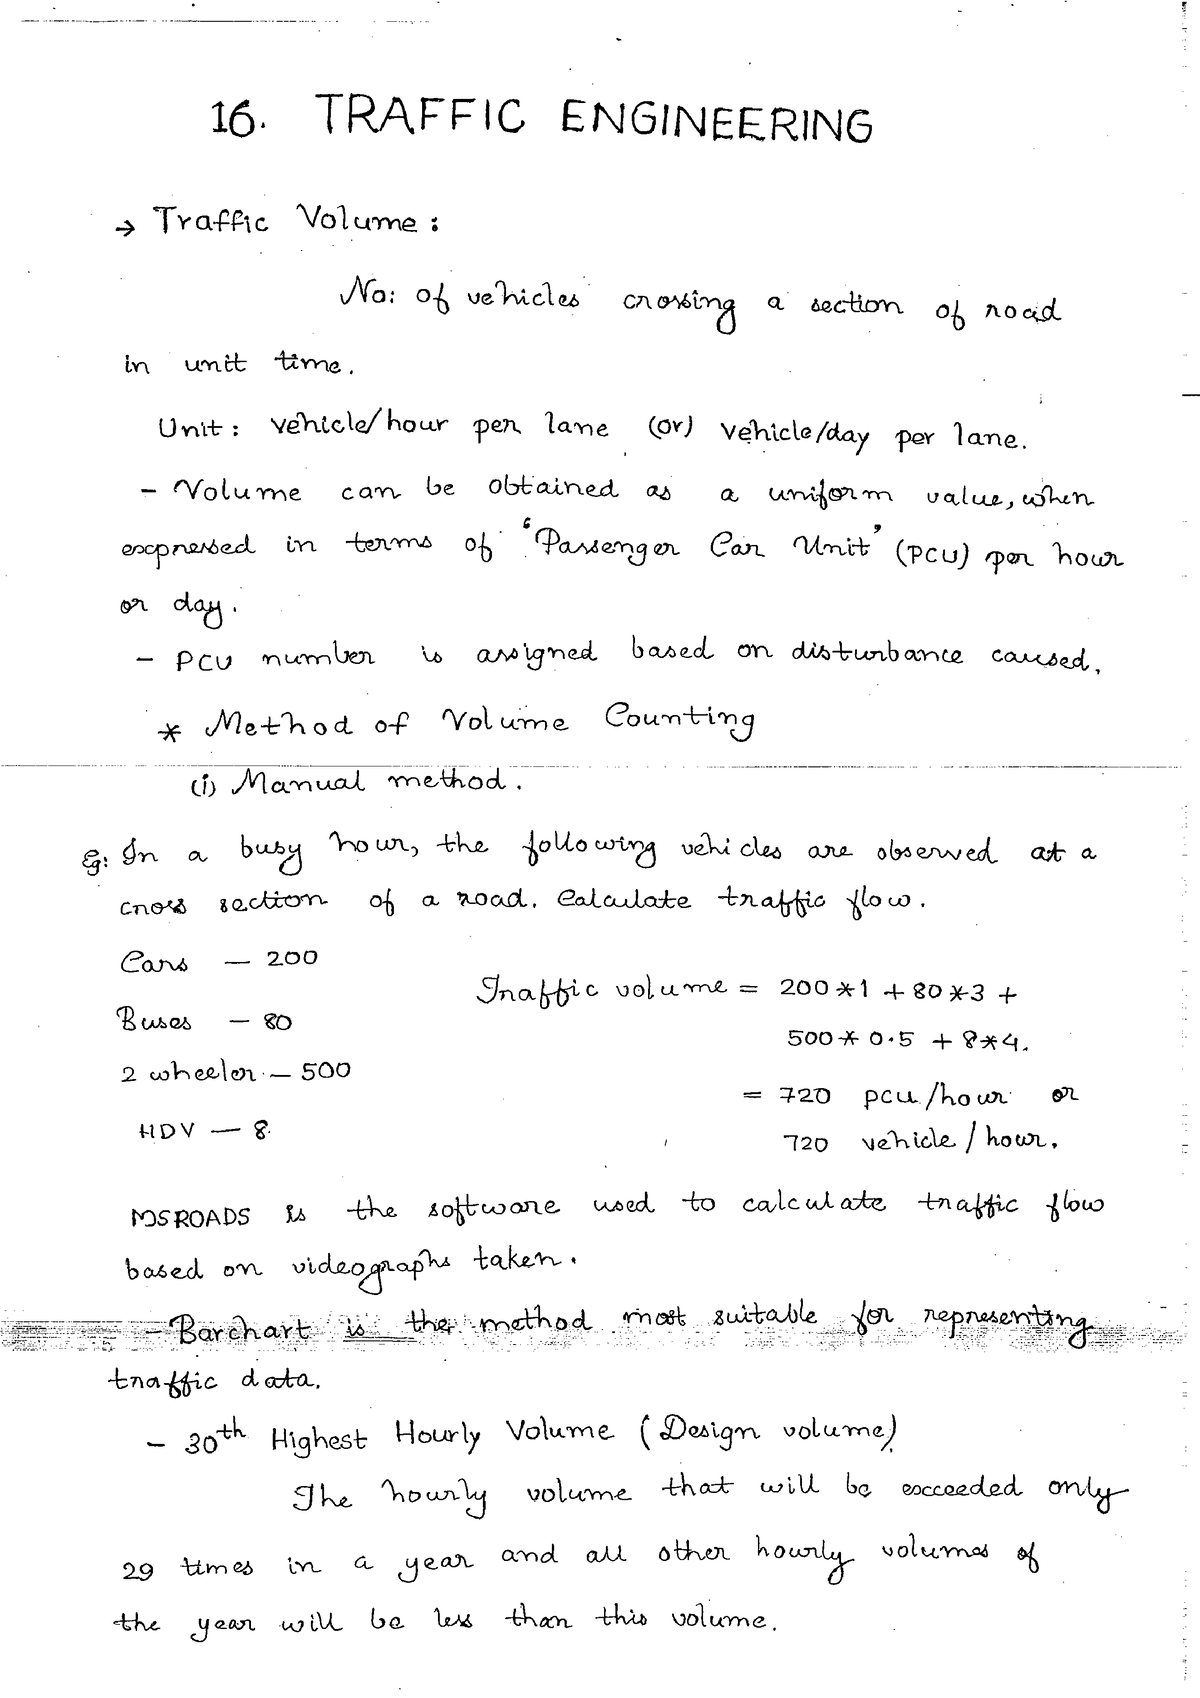 16. TRAFFIC ENGINEERING
→ Traffic Volume :
No: of vehicles crossing a section of road
in unit time.
Unit : vehicle/hour per lane (or) vehicle/day per lane.
- Volume can be obtained as a uniform value, when
expressed in terms of 'Passenger Car Unit' (PCU) per hour
or day.
- PCU number is assigned based on disturbance caused.
* Method of Volume Counting
(i) Manual method.
Eg: In a busy hour, the following vehicles are observed at a
cross section of a road. Calculate traffic flow.
Cars — 200
Traffic volume = 200*1 + 80*3 +
Buses — 80
500* 0.5 + 8*4.
2 wheeler — 500
= 720 pcu/hour or
HDV — 8
720 vehicle / hour.
MSROADS is the software used to calculate traffic flow
based on videographs taken.
- Barchart is the method most suitable for representing
traffic data.
- 30th Highest Hourly Volume (Design volume)
The hourly volume that will be exceeded only
29 times in a year and all other hourly volumes of
the year will be less than this volume.